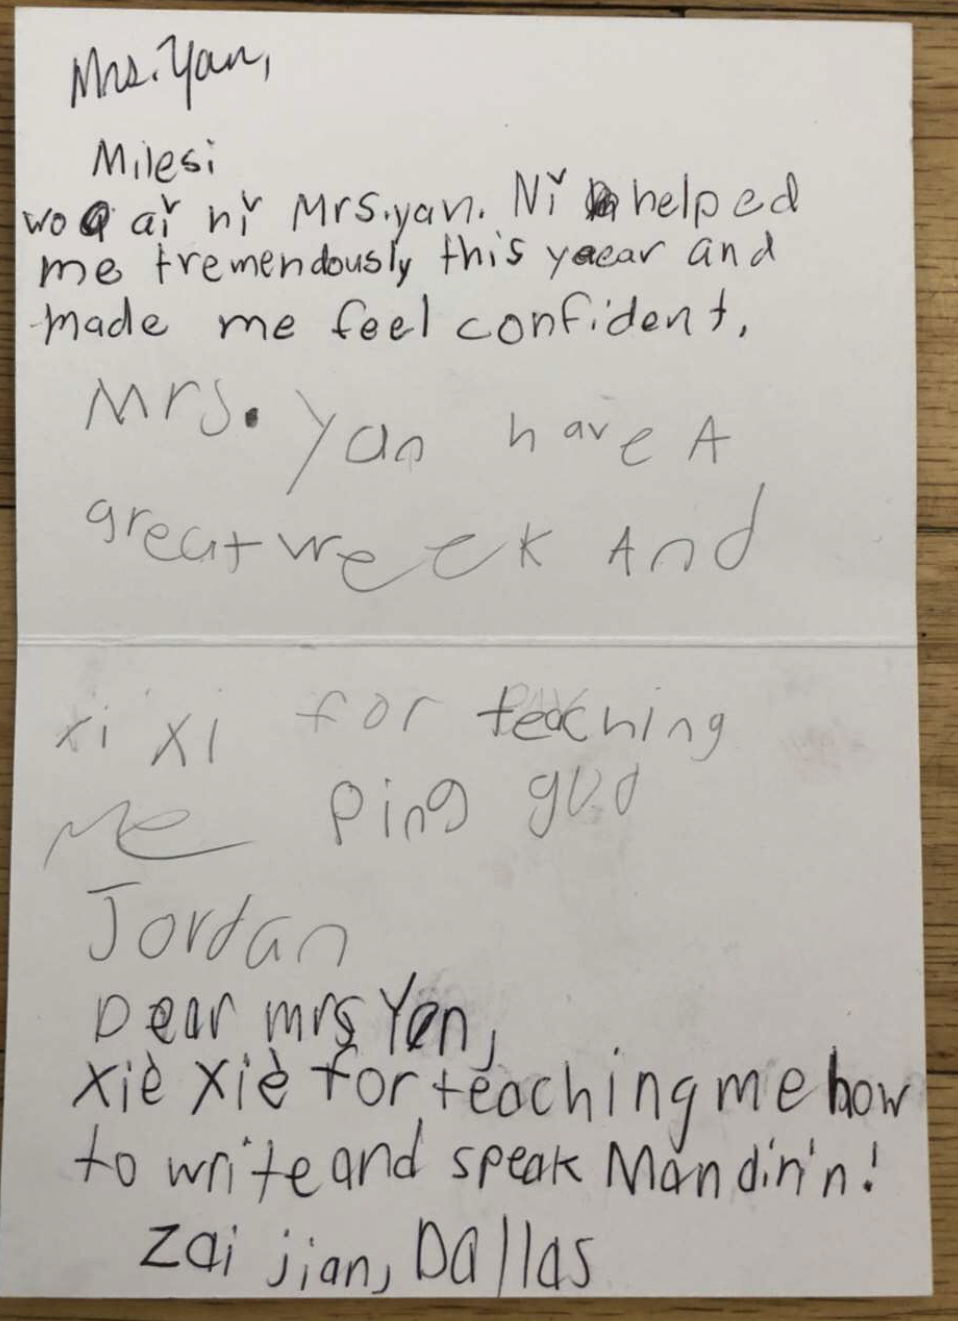 Mrs. Yan,
Milesi
wo aǐ nǐ Mrs.yan. Nǐ helped
me tremendously this yaear and
made me feel confident.
Mrs. Yan have A
great week And
xi xi for teaching
me Ping guo
Jordan
Dear mrs Yan,
xiè xiè for teaching me how
to write and speak Mandin'n!
zai jian, Dallas